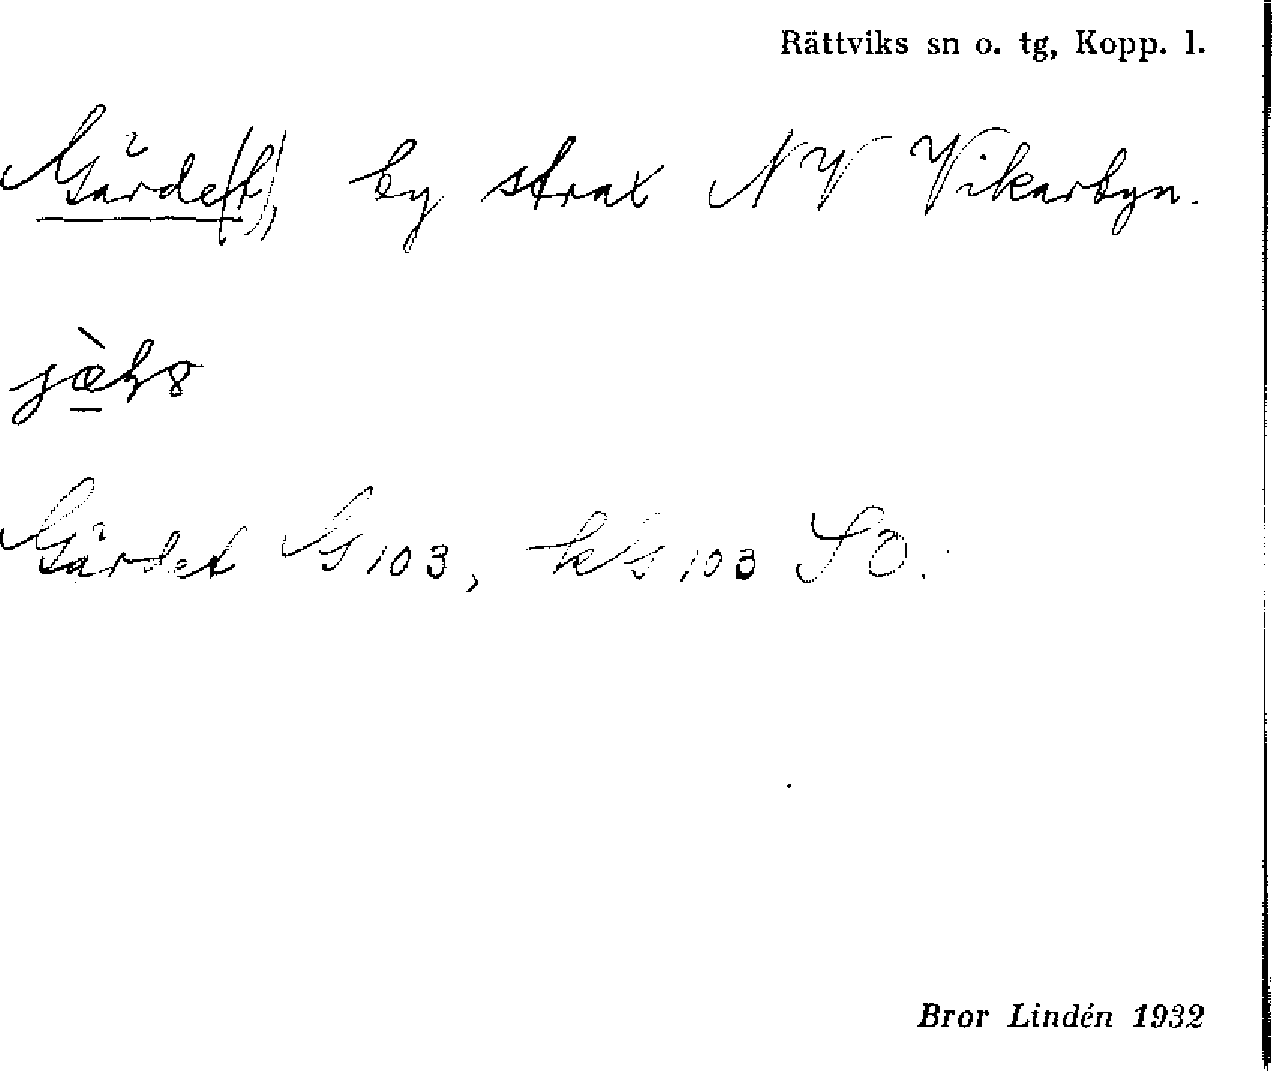 Rättviks sn o. tg, Kopp. l.
Gärde(t), by strax NV Vikarbyn.
Gärdet G 103, kG 103 SO.
Bror Lindén 1932